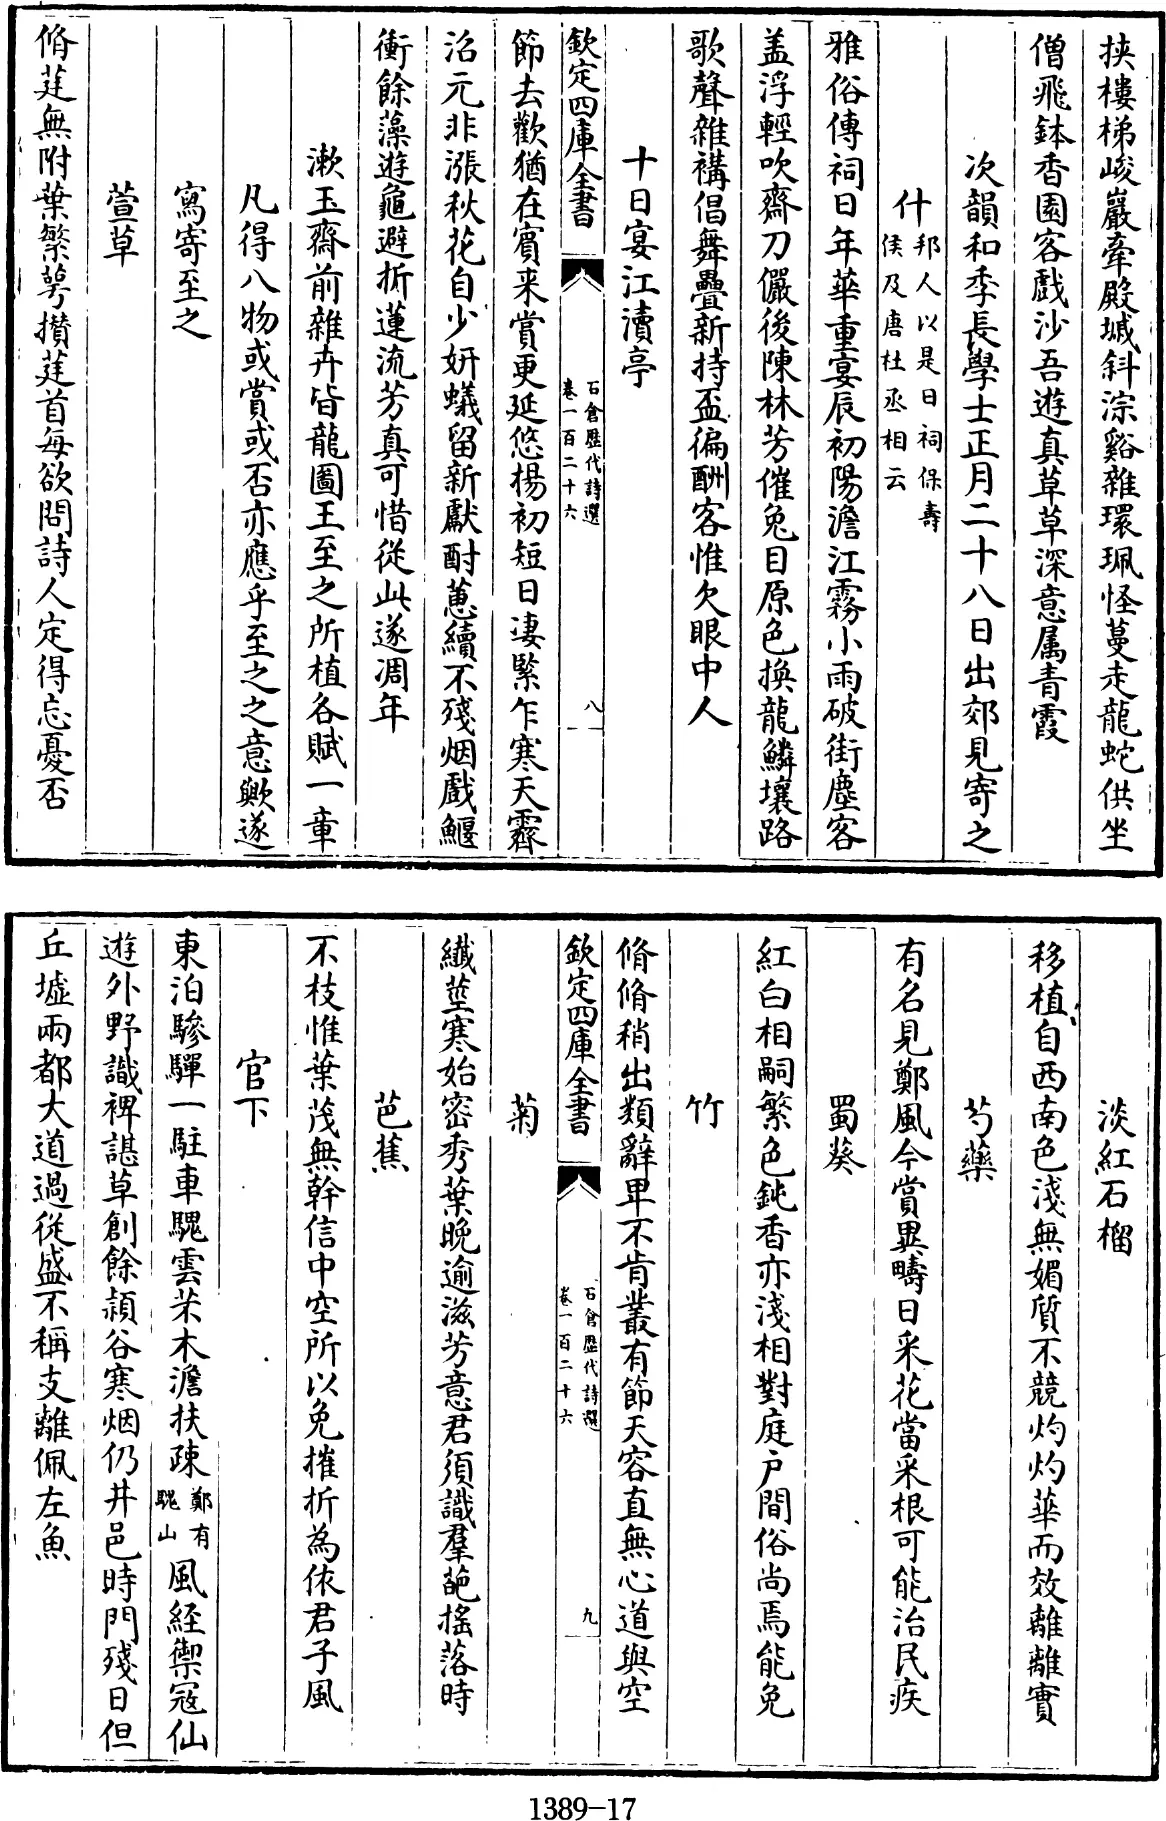 挟樓梯峻巖牽殿墄斜淙谿雜環珮怪蔓走龍蛇供坐
僧飛鉢香園客戲沙吾遊真草草深意属青霞
次韻和季長學士正月二十八日出郊見寄之
什邦人以是日祠保壽
侯及唐杜丞相云
雅俗傳祠日年華重宴辰初陽澹江霧小雨破街塵客
盖浮輕吹齋刀儼後陳林芳催兔目原色換龍鱗壤路
歌聲雜褠倡舞疊新持盃徧酬客惟欠眼中人
十日宴江瀆亭
欽定四庫全書
石倉歷代詩選
卷一百二十六
八
節去歡猶在賓来賞更延悠楊初短日凄緊乍寒天霽
沼元非漲秋花自少妍蟻留新獻酎蔥續不殘烟戲鰋
衝餘藻遊龜避折蓮流芳真可惜從此遂凋年
漱玉齋前雜卉皆龍圖王至之所植各賦一章
凡得八物或賞或否亦應乎至之之意歟遂
寫寄至之
萱草
脩莛無附葉繁萼攅莛首每欲問詩人定得忘憂否
淡紅石榴
移植自西南色淺無媚質不競灼灼華而效離離實
芍藥
有名見鄭風今賞異疇日采花當采根可能治民疾
蜀葵
紅白相嗣繁色鈍香亦淺相對庭戶間俗尚焉能免
竹
脩脩稍出類辭卑不肯叢有節天容直無心道與空
欽定四庫全書
石倉歷代詩選
卷一百二十六
九
菊
纖莖寒始密秀葉晚逾滋芳意君須識羣葩搖落時
芭蕉
不枝惟葉茂無幹信中空所以免摧折為依君子風
官下
東泊驂驒一駐車騩雲苶木澹扶踈鄭有
騩山風經禦冦仙
遊外野識裨諶草創餘潁谷寒烟仍井邑時門殘日但
丘墟兩都大道過從盛不稱支離佩左魚
1389-17